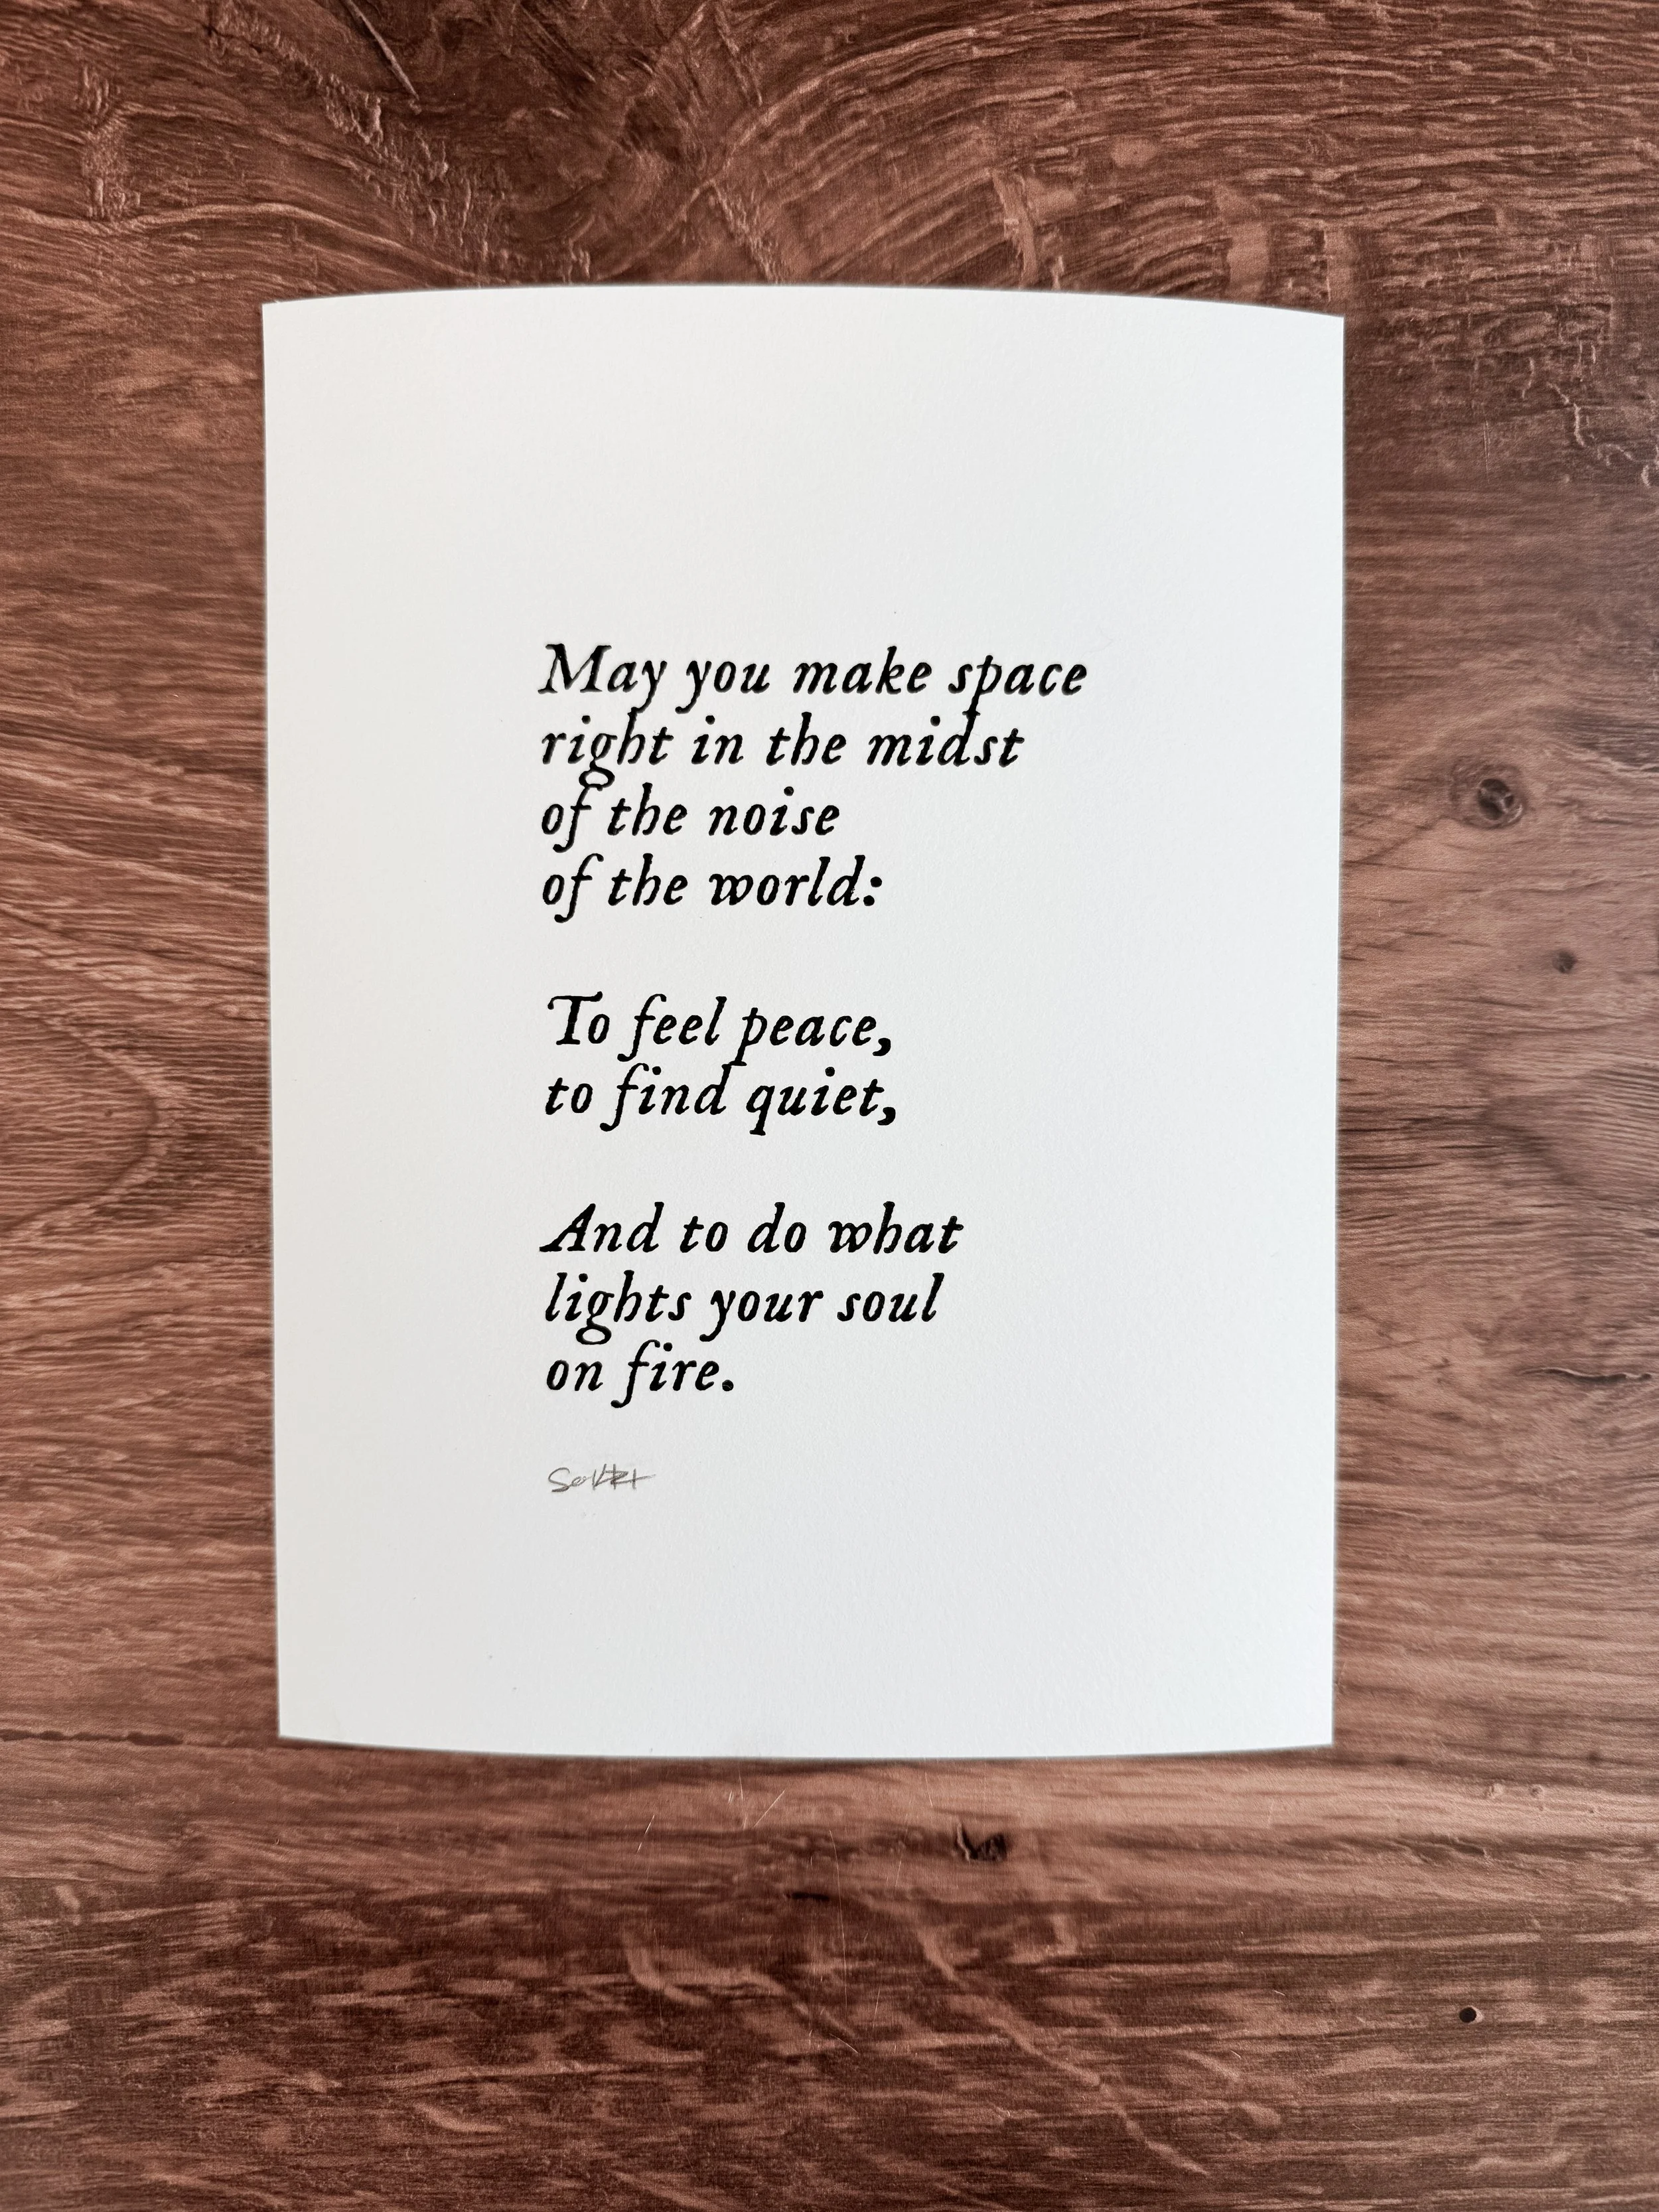 May you make space
right in the midst
of the noise
of the world:
To feel peace,
to find quiet,
And to do what
lights your soul
on fire.